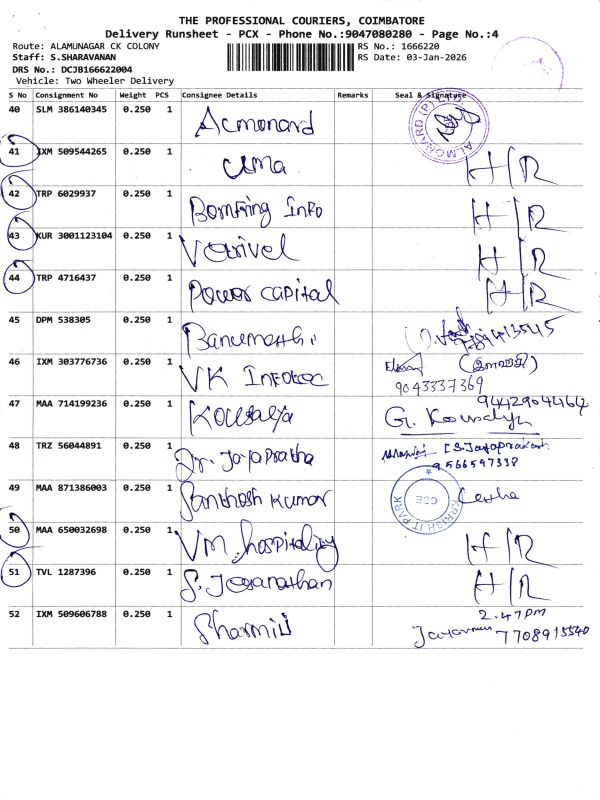 THE PROFESSIONAL COURIERS, COIMBATORE
Delivery Runsheet - PCX - Phone No.:9047080280 - Page No.:4
Route: ALAMUNAGAR CK COLONY RS No.: 1666220
Staff: S.SHARAVANAN RS Date: 03-Jan-2026
DRS No.: DCJB166622004
Vehicle: Two Wheeler Delivery
S No Consignment No Weight PCS Consignee Details Remarks Seal & Signature
40 SLM 386140345 0.250 1 Acmonard
41 IXM 509544265 0.250 1 Uma H/R
42 TRP 6029937 0.250 1 Bomfring Info H/R
43 KUR 3001123104 0.250 1 Vetrivel H/R
44 TRP 4716437 0.250 1 Power capital H/R
45 DPM 538305 0.250 1 Banumathi
46 IXM 303776736 0.250 1 VK Infotec
9043337369
47 MAA 714199236 0.250 1 Kousalya G. Kousalya
48 TRZ 56044891 0.250 1 Dr. Jayapratha
9566597338
49 MAA 871386003 0.250 1 Santhosh Kumar
50 MAA 650032698 0.250 1 VM hospitality H/R
51 TVL 1287396 0.250 1 S. Jeganathan H/R
52 IXM 509606788 0.250 1 Sharmili 2.47pm
7708915540